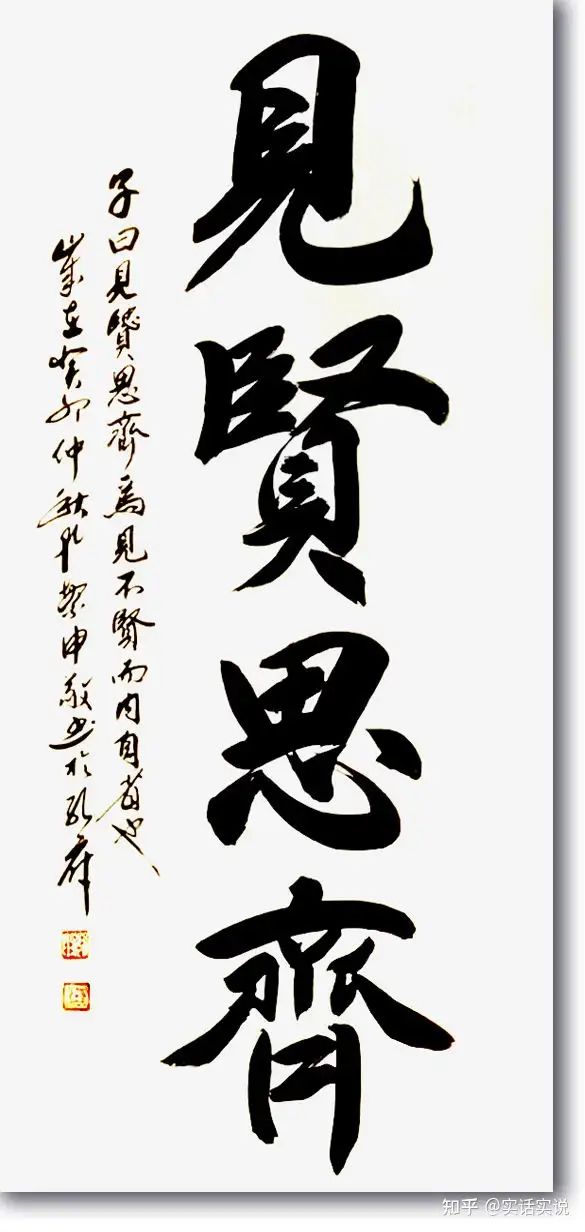 見賢思齊
子曰見賢思齊焉見不賢而内自省也
歲在癸卯仲秋孔繁申敬书於孔府
知乎 @实话实说